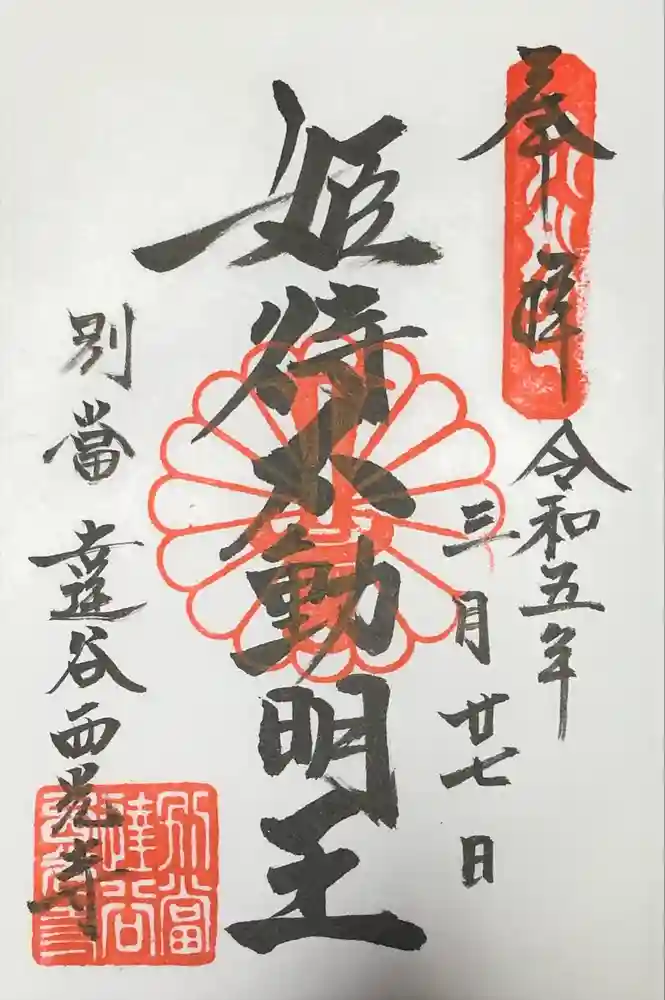 奉拝
令和五年
三月廿七日
姫待不動明王
別當 達谷西光寺
別當
達谷